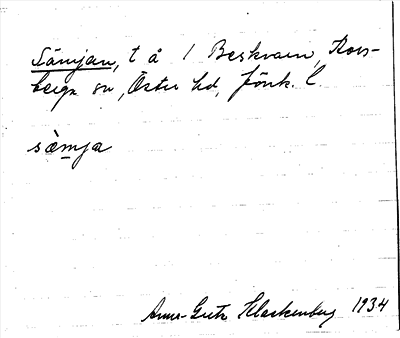 Sämjan, t å 1 Beskvarn, Kors-
berga sn, Östra hd, Jönk. l
sæmja
Anna-Greta Klackenberg 1934